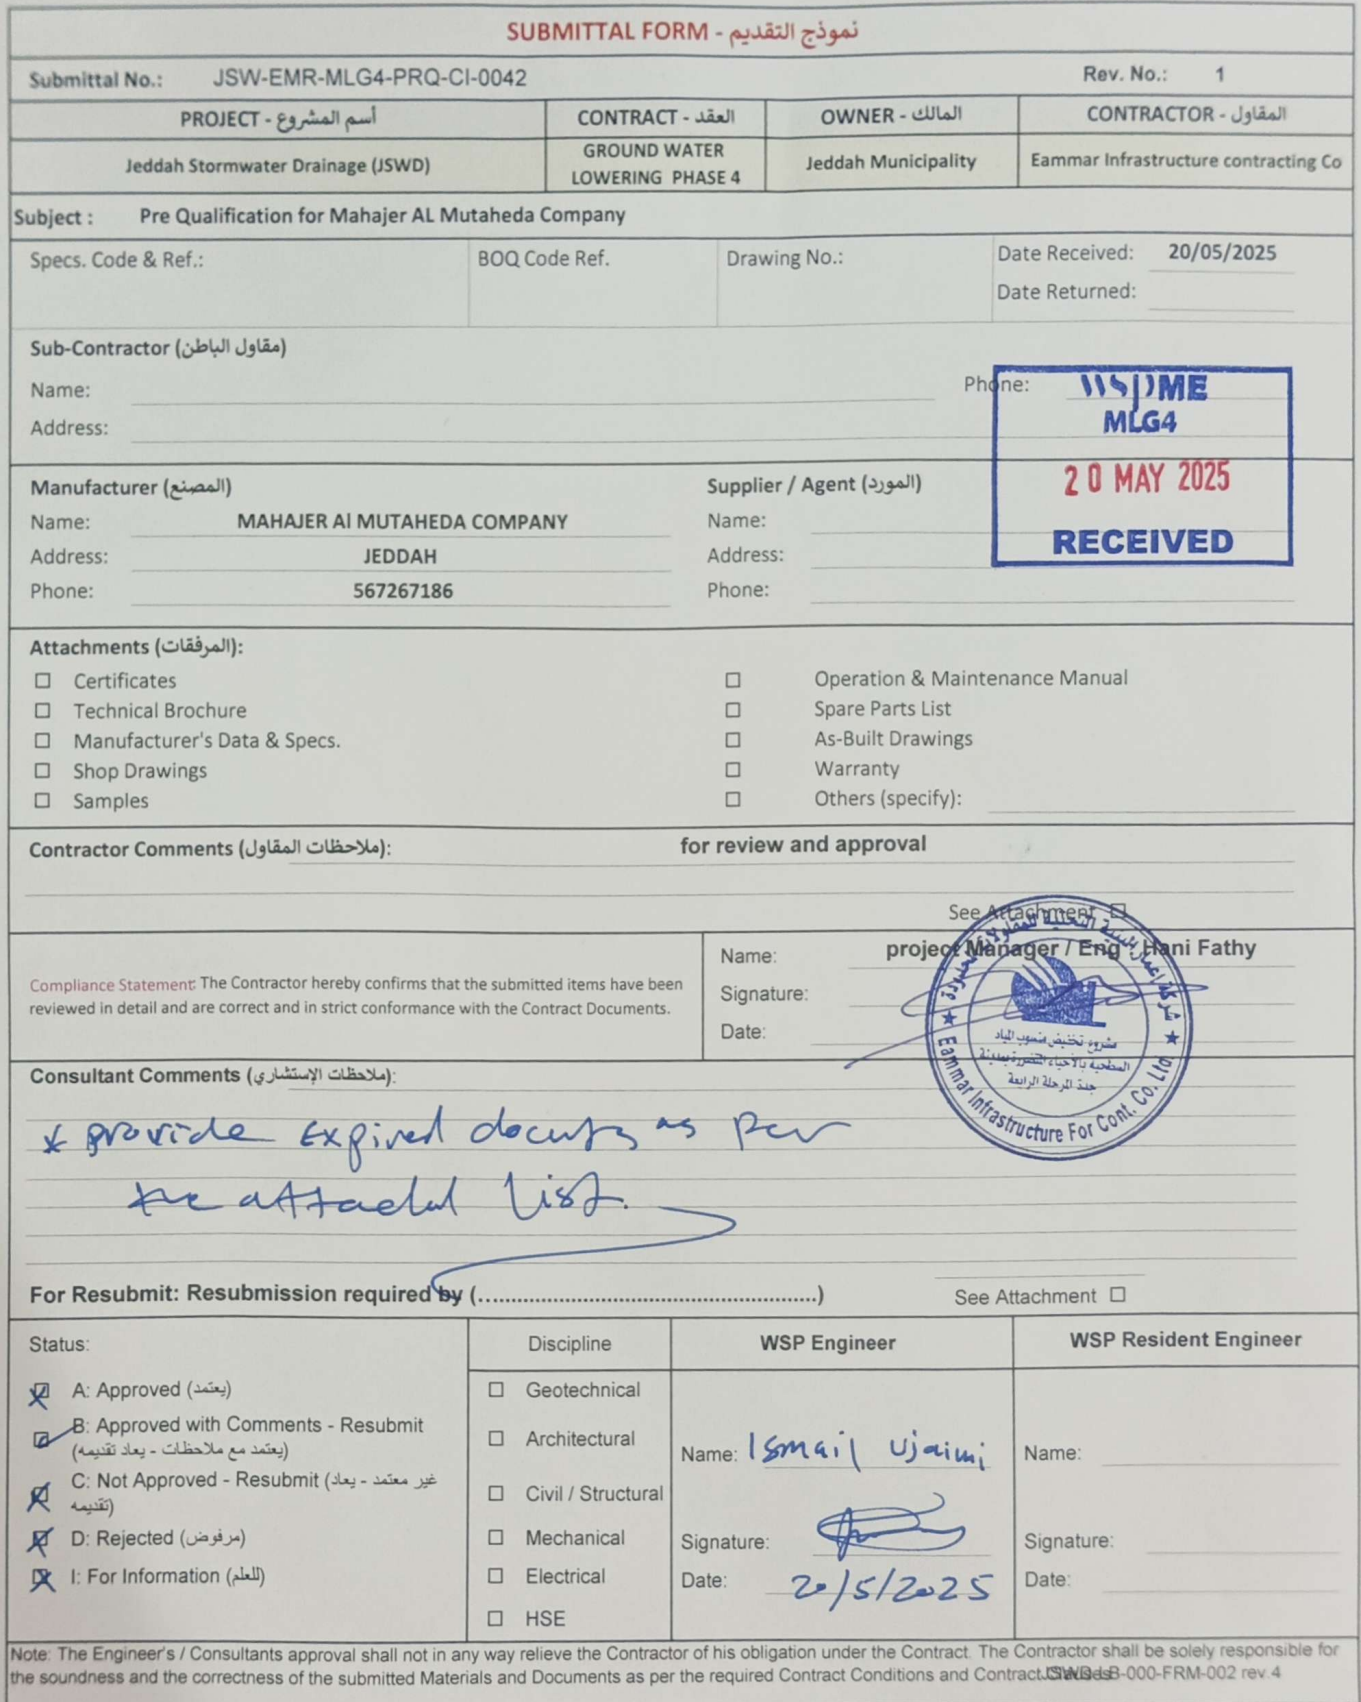 SUBMITTAL FORM - نموذج التقديم
Submittal No.: JSW-EMR-MLG4-PRQ-CI-0042 Rev. No.: 1
PROJECT - أسم المشروع CONTRACT - العقد OWNER - المالك CONTRACTOR - المقاول
Jeddah Stormwater Drainage (JSWD) GROUND WATER LOWERING PHASE 4 Jeddah Municipality Eammar Infrastructure contracting Co
Subject : Pre Qualification for Mahajer AL Mutaheda Company
Specs. Code & Ref.: BOQ Code Ref. Drawing No.: Date Received: 20/05/2025
Date Returned:
Sub-Contractor (مقاول الباطن)
Name: Phone:
Address:
WSP ME
MLG4
20 MAY 2025
RECEIVED
Manufacturer (المصنع) Supplier / Agent (المورد)
Name: MAHAJER Al MUTAHEDA COMPANY Name:
Address: JEDDAH Address:
Phone: 567267186 Phone:
Attachments (المرفقات):
Certificates Operation & Maintenance Manual
Technical Brochure Spare Parts List
Manufacturer's Data & Specs. As-Built Drawings
Shop Drawings Warranty
Samples Others (specify):
Contractor Comments (ملاحظات المقاول): for review and approval
See Attachment
Compliance Statement: The Contractor hereby confirms that the submitted items have been
reviewed in detail and are correct and in strict conformance with the Contract Documents.
Name: project Manager / Eng Hani Fathy
Signature:
Date:
شركة إعمار البنية التحتية للمقاولات المحدودة
مشروع تخفيض منسوب المياه
السطحية بالأحياء المتضررة بمدينة
جدة المرحلة الرابعة
Eammar Infrastructure For Cont. Co. Ltd
Consultant Comments (ملاحظات الإستشاري):
* provide Expired as per
the attached list.
For Resubmit: Resubmission required by (......................................................) See Attachment
Status: Discipline WSP Engineer WSP Resident Engineer
A: Approved (يعتمد)
B: Approved with Comments - Resubmit
(يعتمد مع ملاحظات - يعاد تقديمه)
C: Not Approved - Resubmit (غير معتمد - يعاد
تقديمه)
D: Rejected (مرفوض)
I: For Information (للعلم)
Geotechnical
Architectural
Civil / Structural
Mechanical
Electrical
HSE
Name: Ismail Ujaimi
Signature:
Date: 20/5/2025
Name:
Signature:
Date:
Note: The Engineer's / Consultants approval shall not in any way relieve the Contractor of his obligation under the Contract. The Contractor shall be solely responsible for
the soundness and the correctness of the submitted Materials and Documents as per the required Contract Conditions and Contract -000-FRM-002 rev.4